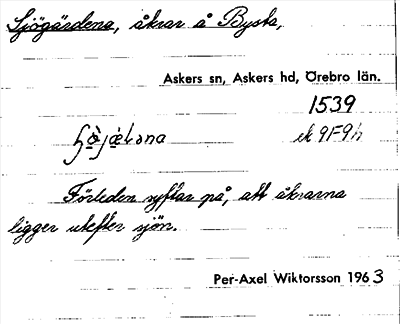 Sjögärdena, åkrar å Bysta,
Askers sn, Askers hd, Örebro län.
1539
ek 9F9h
Förleden syftar på, att åkrarna
ligger utefter sjön.
Per-Axel Wiktorsson 1963